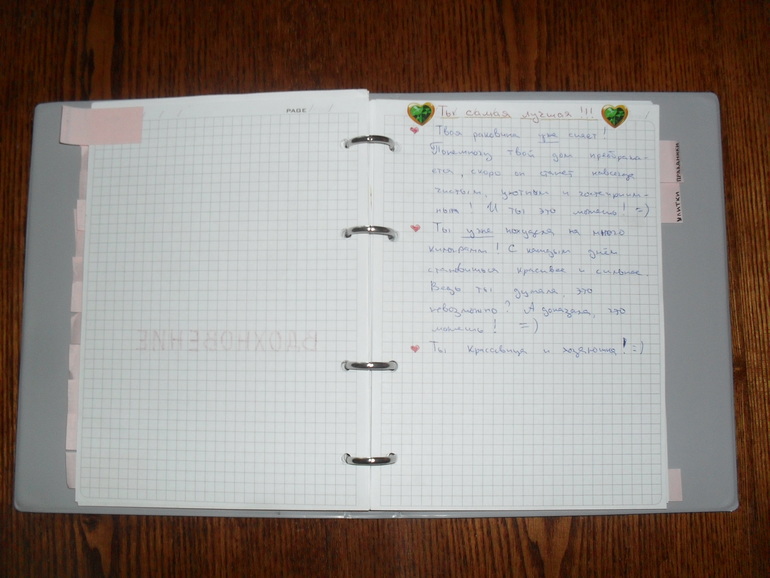 PAGE
ВДОХНОВЕНИЕ
Ты самая лучшая !!!
Твоя раковина уже сияет!
Понемногу твой дом преобража-
ется, скоро он станет навсегда
чистым, уютным и гостеприим-
ным! И ты это можешь! =)
Ты уже похудела на много
килограмм! С каждым днём
становишься красивее и сильнее.
Ведь ты думала, это
невозможно? А доказала, что
можешь! =)
Ты красавица и хозяюшка! =)
ПРАЗДНИКИ
УЛИТКИ